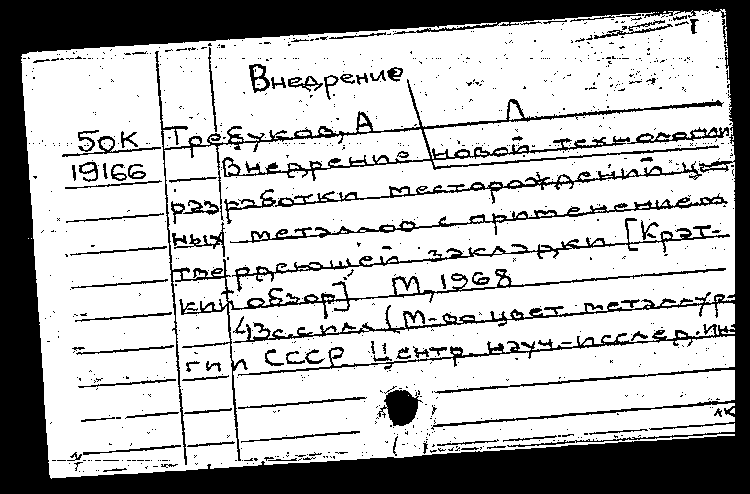 Внедрение
50К Требуков, А Л
19166 Внедрение новой технологии
разработки месторождений цвет
ных металлов с применением
твердеющей закладки [Крат-
кий обзор] М, 1968
43с. с илл (М-во цвет металлур-
гии СССР Центр. науч.-исслед. ин-